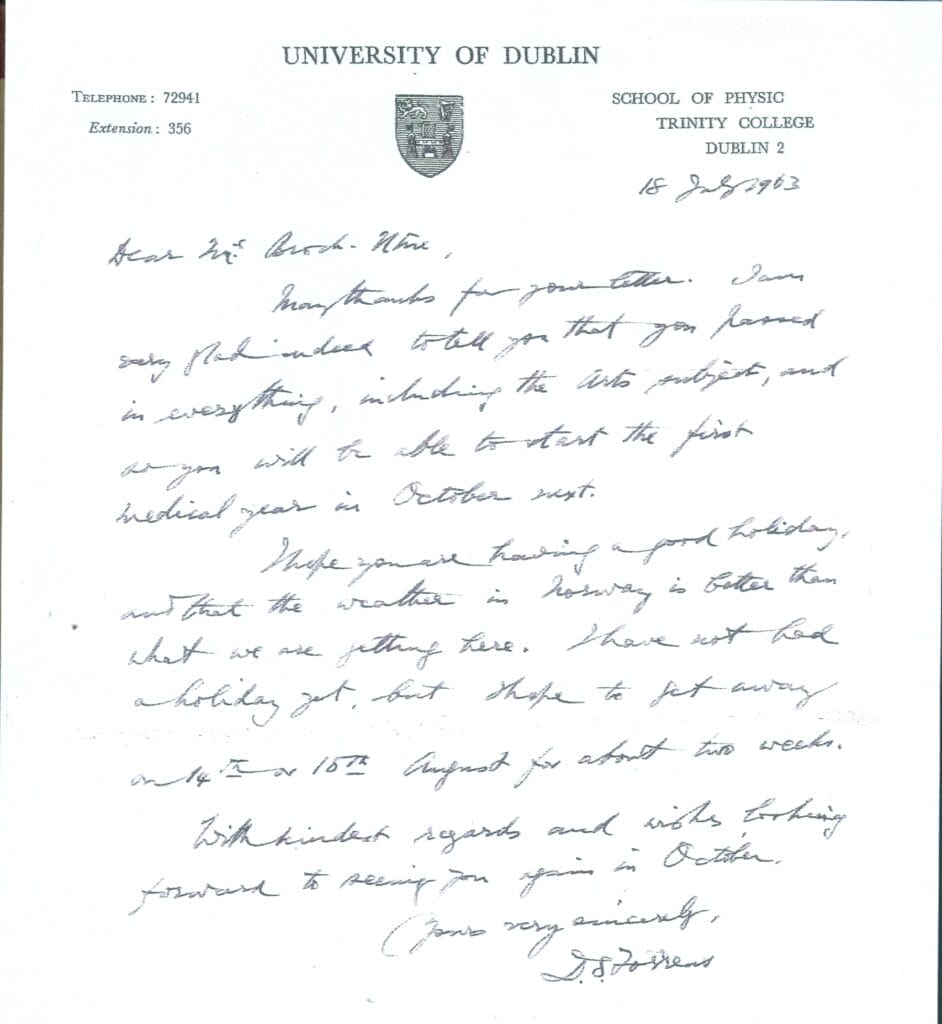 UNIVERSITY OF DUBLIN
TELEPHONE: 72941
Extension: 356
SCHOOL OF PHYSIC
TRINITY COLLEGE
DUBLIN 2
18 July 1963
Dear Mrs. Broch-Utne,
Many thanks for your letter. I am
very glad indeed to tell you that you passed
in everything, including the Arts subject, and
so you will be able to start the first
medical year in October next.
I hope you are having a good holiday,
and that the weather in Norway is better than
what we are getting here. I have not had
a holiday yet, but I hope to get away
on 14th or 15th August for about two weeks.
With kindest regards and wishes, looking
forward to seeing you again in October.
Yours very sincerely,
D.S. Torrens